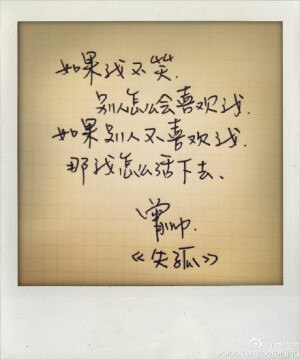 如果我不笑.
别人怎么会喜欢我.
如果别人不喜欢我.
那我怎么活下去、
曾帅.
《失孤》